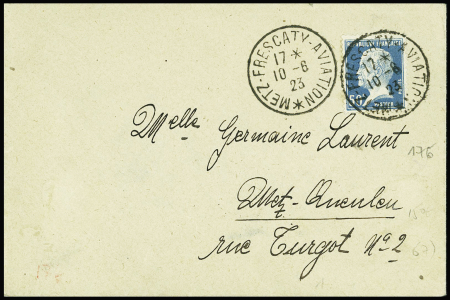 METZ-FRESCATY-AVIATION
17 *
10 - 6
23
METZ-FRESCATY-AVIATION
17 *
10 - 6
23
50c
Melle Germaine Laurent
176
Metz-Queuleu
rue Turgot No 2